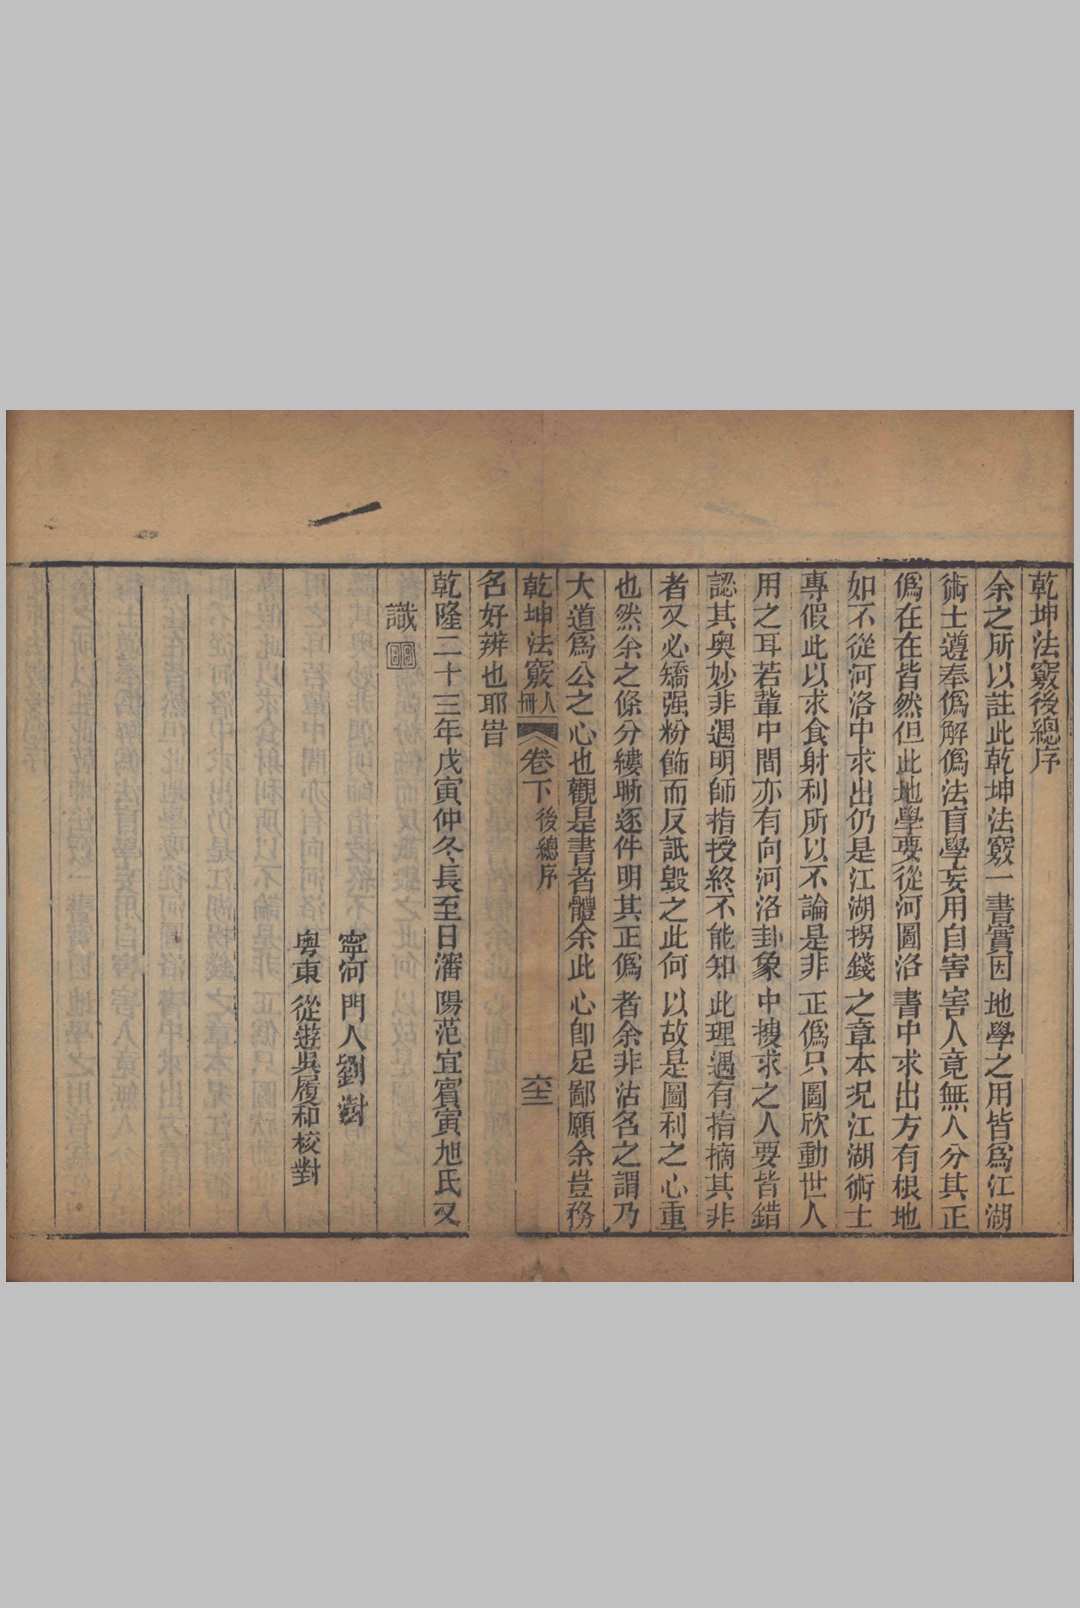 乾坤法竅後總序
余之所以註此乾坤法竅一書實因地學之用皆爲江湖
術士遵奉僞解僞法盲學妄用自害害人竟無人分其正
僞在在皆然但此地學要從河圖洛書中求出方有根地
如不從河洛中求出仍是江湖拐錢之章本况江湖術士
專假此以求食射利所以不論是非正僞只圖欣動世人
用之耳若輩中間亦有向河洛卦象中搜求之人要皆錯
認其奥妙非遇明師指授終不能知此理遇有指摘其非
者又必矯强粉飾而反詆毀之此何以故是圖利之心重
也然余之條分縷晰逐件明其正僞者余非沽名之謂乃
大道爲公之心也觀是書者體余此心卽足鄙願余豈務
乾坤法竅人冊 卷下 後總序 六十三
名好辨也耶旹
乾隆二十三年戊寅仲冬長至日瀋陽范宜賓寅旭氏又
識
寧河門人劉澍
粤東從遊吳履和校對